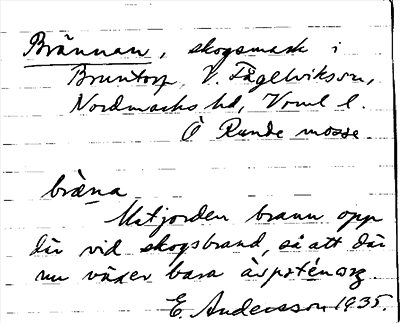 Brännan, skogsmark i
Bruntorp, V. Fågelviks sn,
Nordmarks hd, Vrml l.
Ö Runde mosse.
bräna
Matjorden brann opp
där vid skogsbrand, så att där
nu växer bara
E. Andersson 1935.